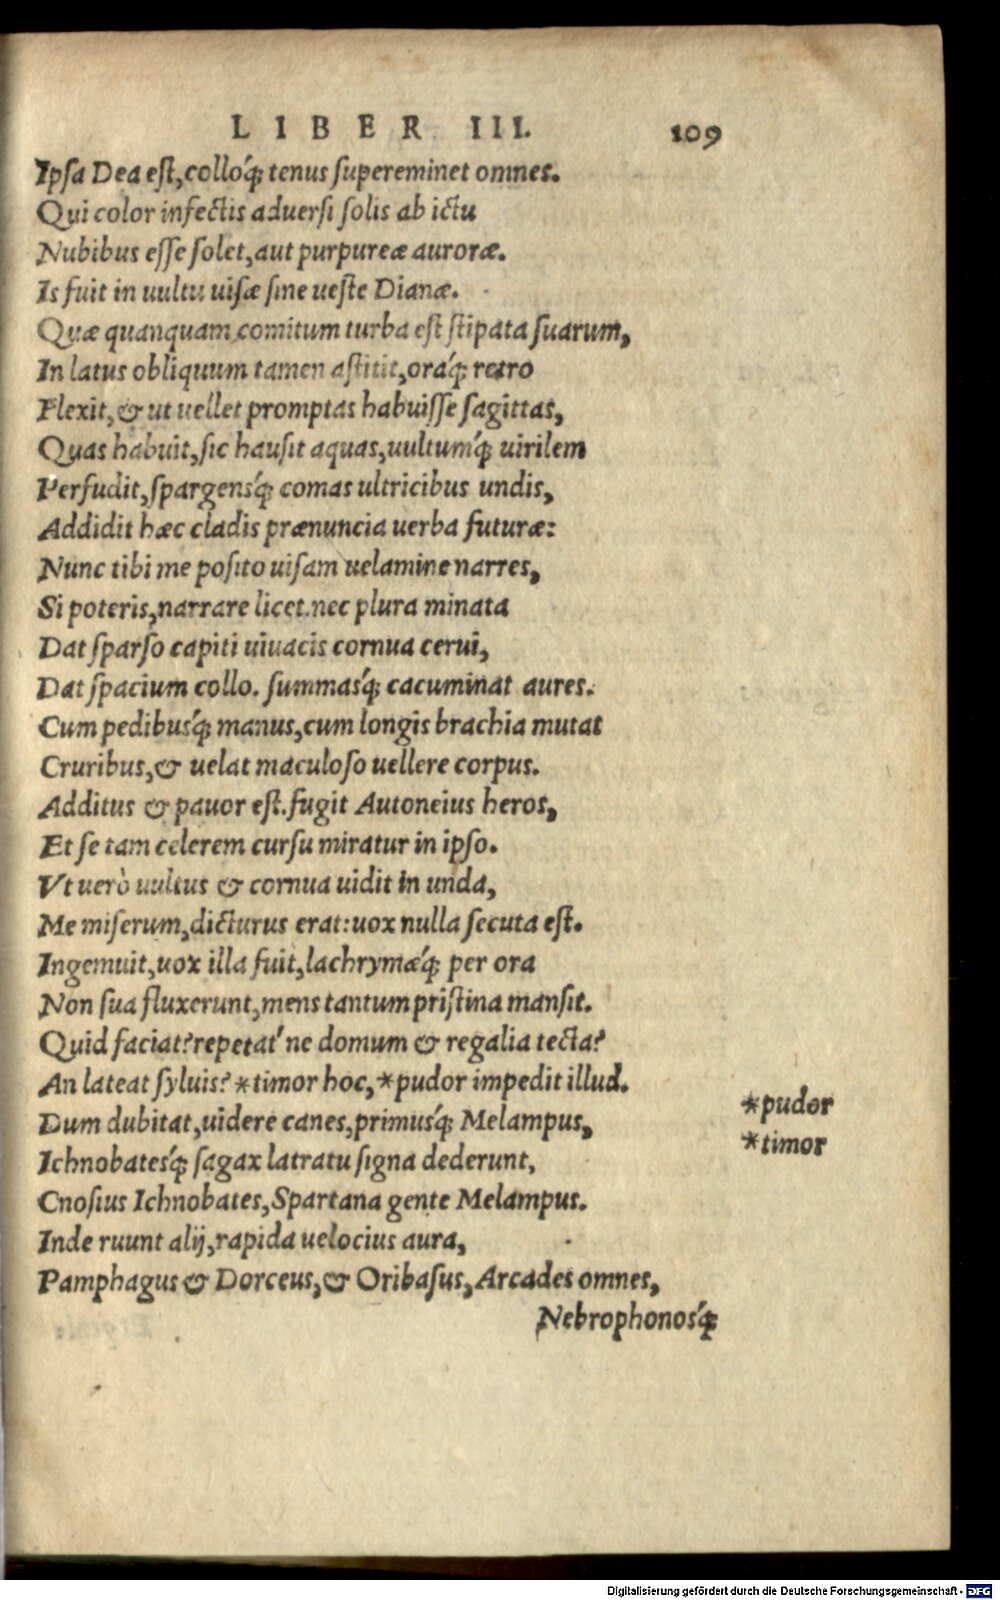 LIBER III. 109
Ipsa Dea est, colloq́; tenus supereminet omnes.
Qui color infectis aduersi solis ab ictu
Nubibus esse solet, aut purpureæ auroræ.
Is fuit in uultu uisæ sine ueste Dianæ.
Quæ quanquam comitum turba est stipata suarum,
In latus obliquum tamen astitit, oraq́; retro
Flexit, & ut uellet promptas habuisse sagittas,
Quas habuit, sic hausit aquas, uultumq́; uirilem
Perfudit, spargensq́; comas ultricibus undis,
Addidit hæc cladis prænuncia uerba futuræ:
Nunc tibi me posito uisam uelamine narres,
Si poteris, narrare licet. nec plura minata
Dat sparso capiti uiuacis cornua cerui,
Dat spacium collo. summasq́; cacuminat aures.
Cum pedibusq́; manus, cum longis brachia mutat
Cruribus, & uelat maculoso uellere corpus.
Additus & pauor est. fugit Autoneius heros,
Et se tam celerem cursu miratur in ipso.
Vt uerò uultus & cornua uidit in unda,
Me miserum, dicturus erat: uox nulla secuta est.
Ingemuit, uox illa fuit, lachrymæq́; per ora
Non sua fluxerunt, mens tantum pristina mansit.
Quid faciat? repetat' ne domum & regalia tecta?
An lateat syluis? *timor hoc, *pudor impedit illud.
*pudor
Dum dubitat, uidere canes, primusq́; Melampus,
*timor
Ichnobatesq́; sagax latratu signa dederunt,
Cnosius Ichnobates, Spartana gente Melampus.
Inde ruunt alij, rapida uelocius aura,
Pamphagus & Dorceus, & Oribasus, Arcades omnes,
Nebrophonosq́;
Digitalisierung gefördert durch die Deutsche Forschungsgemeinschaft - DFG